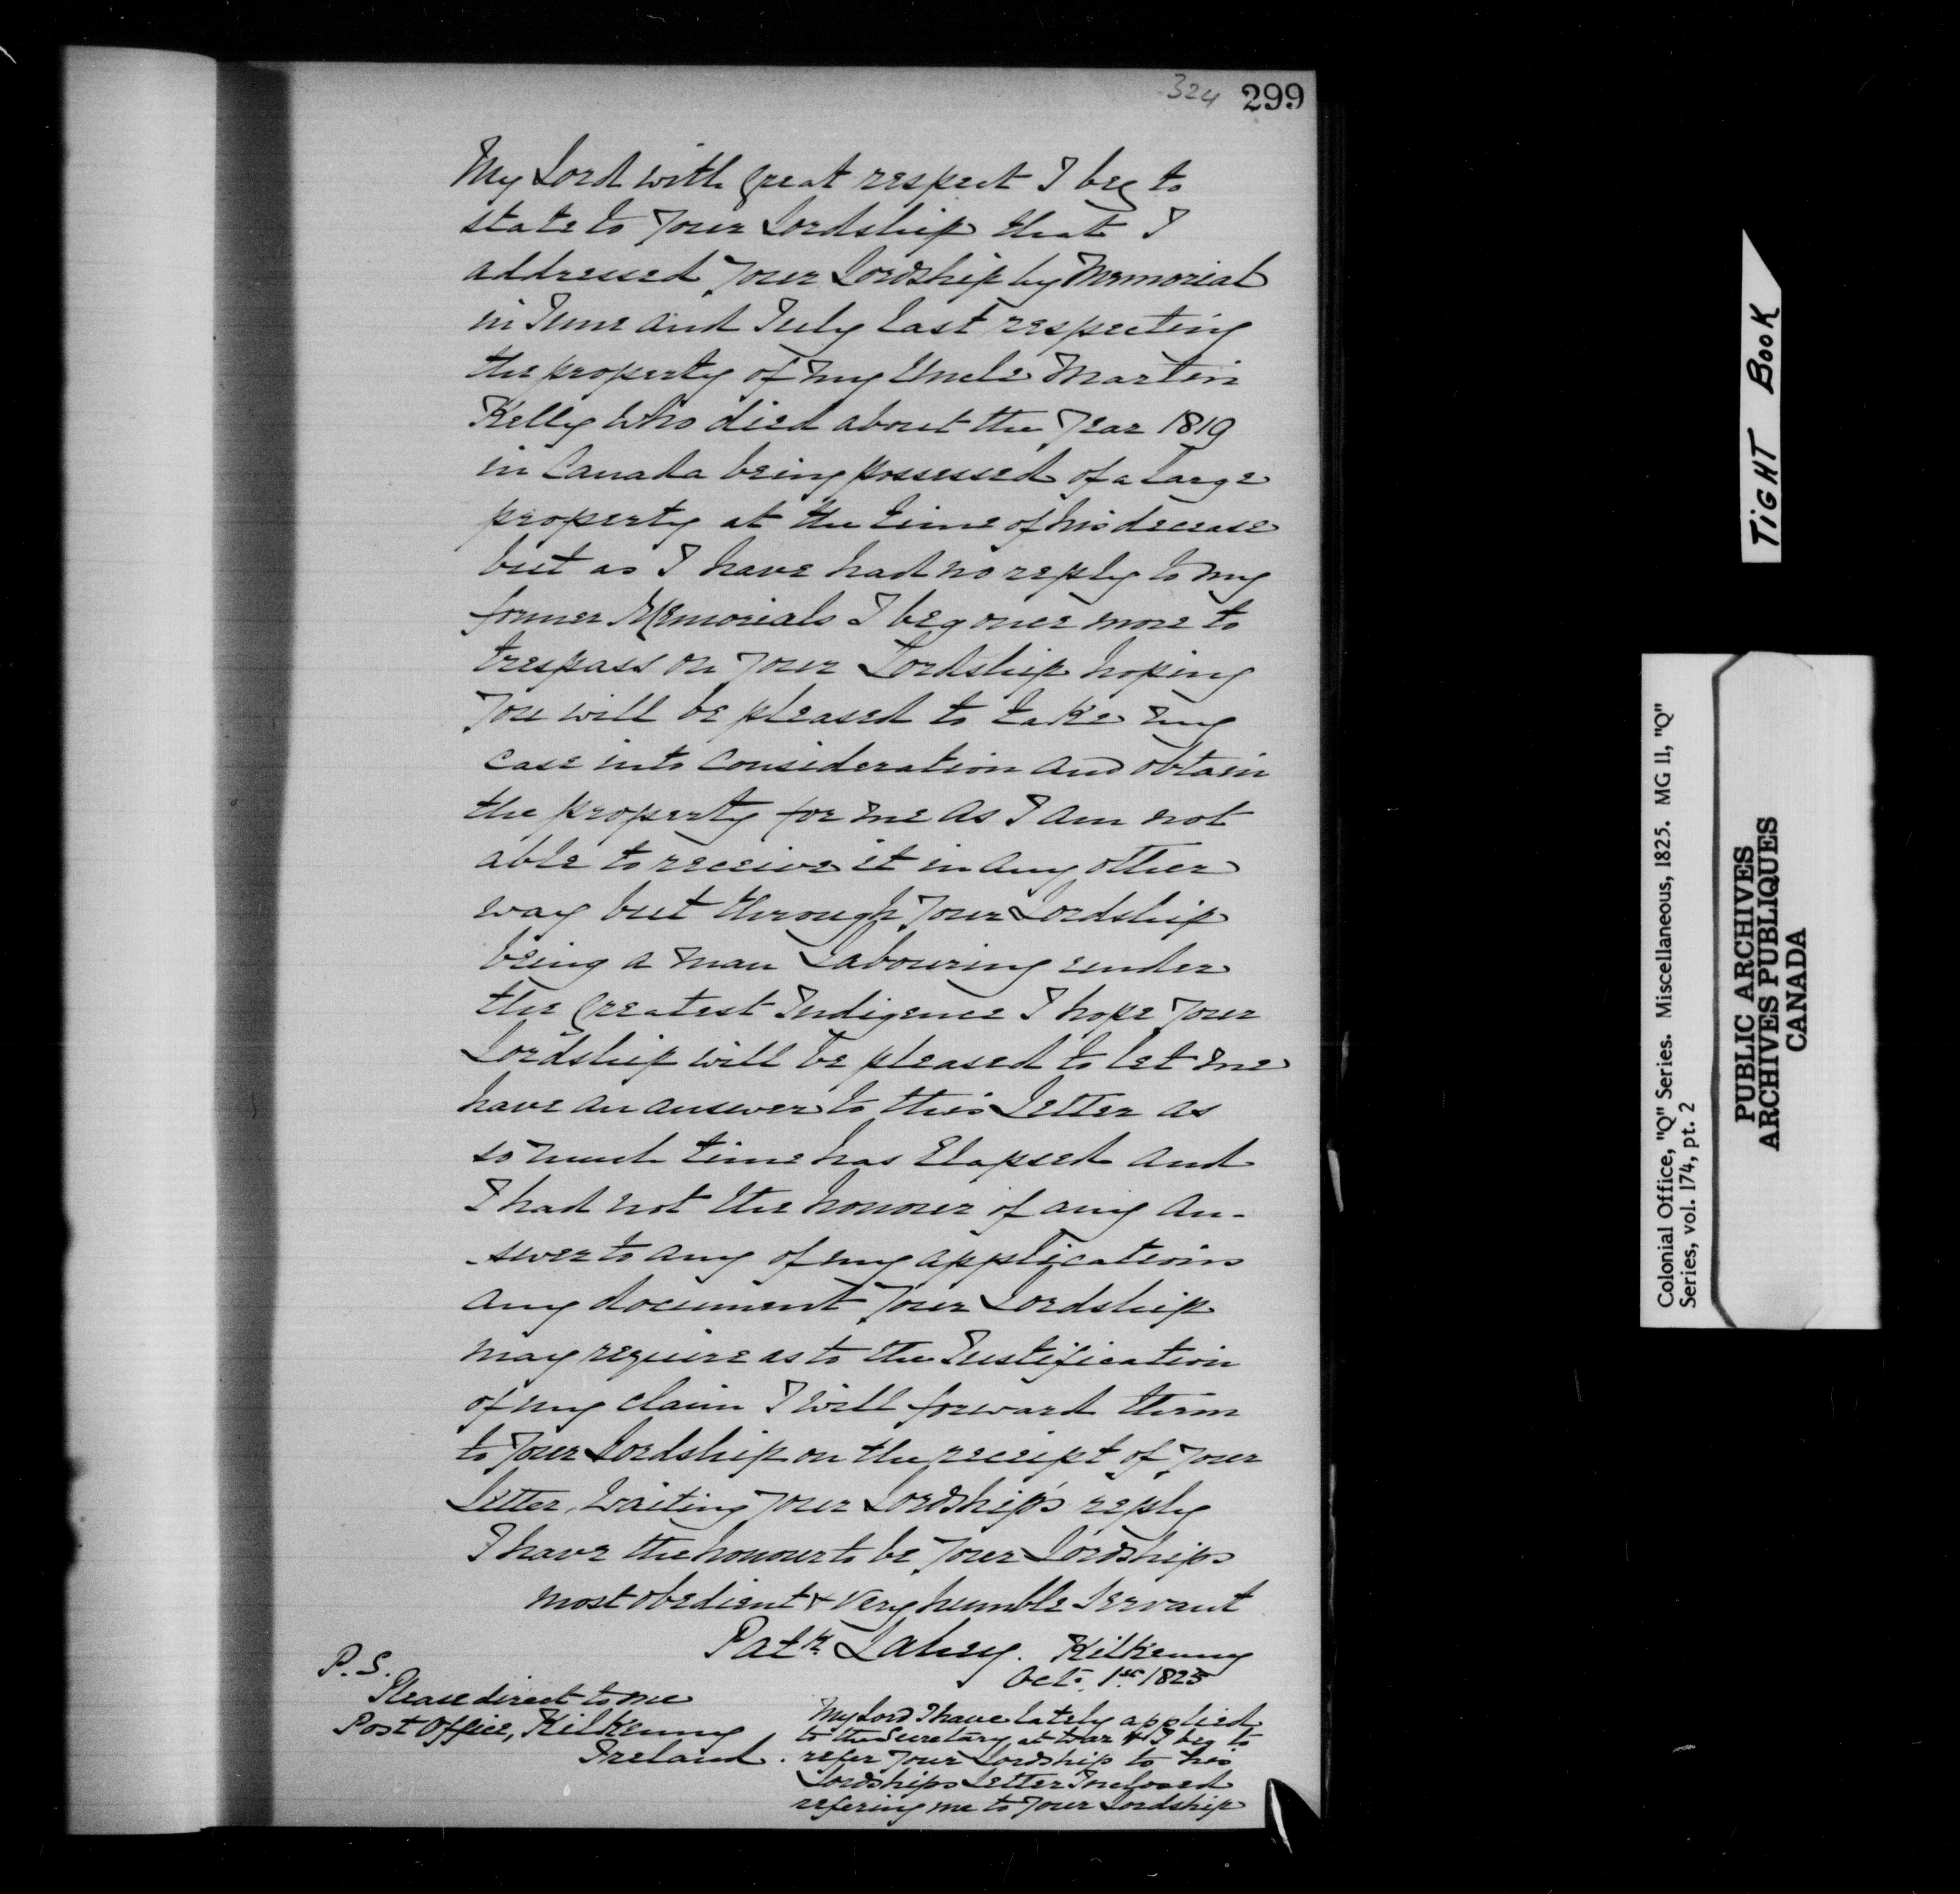 324 299
My Lord with great respect I beg to
state to your Lordship that I
addressed your Lordship by Memorial
in June and July last respecting
the property of my Uncle Martin
Kelly who died about the Year 1819
in Canada being possessed of a large
property at the time of his decease
but as I have had no reply to my
former Memorials I beg once more to
trespass on your Lordship hoping
you will be pleased to take my
case into consideration and obtain
the property for me as I am not
able to receive it in any other
way but through your Lordship
being a man Labouring under
the greatest Indigence I hope your
Lordship will be pleased to let me
have an answer to this Letter as
so much time has Elapsed and
I had not the honour of any an-
-swer to any of my applications
any document your Lordship
may require as to the Justification
of my claim I will forward them
to your Lordship on the receipt of your
Letter, waiting your Lordship's reply
I have the honour to be your Lordships
most obedient & very humble Servant
Patk. Lahey. Kilkenny
Oct. 1st 1825
P.S.
Please direct to me
Post Office, Kilkenny
Ireland.
My Lord I have lately applied
to the Secretary at war & I beg to
refer your Lordship to his
Lordships Letter Inclosed
refering me to your Lordship
TiGHT BooK
Colonial Office, "Q" Series. Miscellaneous, 1825. MG 11, "Q"
Series, vol. 174, pt. 2
PUBLIC ARCHIVES
ARCHIVES PUBLIQUES
CANADA